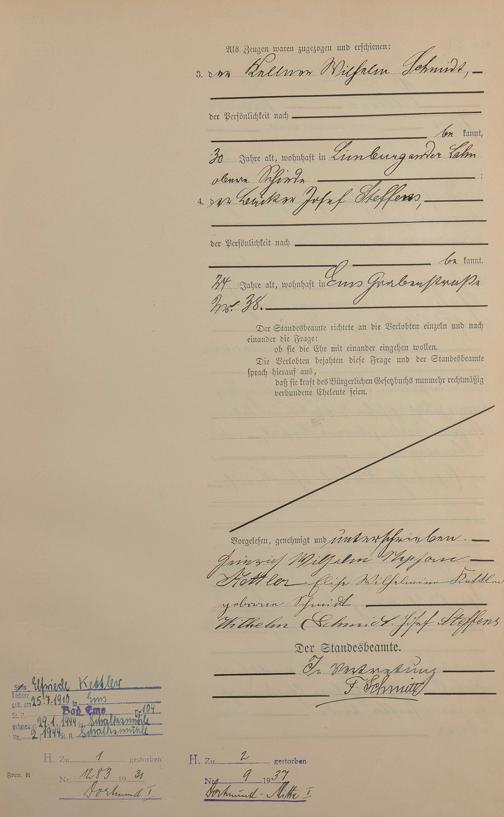 Als Zeugen waren zugezogen und erschienen:
3. der Kellner Wilhelm Schmidt,
der Persönlichkeit nach
be kannt,
30 Jahre alt, wohnhaft in Limburg an der Lahn
obere Schiede ;
4. der Bäcker Josef Steffens,
der Persönlichkeit nach
be kannt.
24 Jahre alt, wohnhaft in Ems Grabenstraße
Nr. 38.
Der Standesbeamte richtete an die Verlobten einzeln und nach
einander die Frage:
ob sie die Ehe mit einander eingehen wollen.
Die Verlobten bejahten diese Frage und der Standesbeamte
sprach hierauf aus,
daß sie kraft des Bürgerlichen Gesetzbuchs nunmehr rechtmäßig
verbundene Eheleute seien.
Vorgelesen, genehmigt und unterschrieben.
Heinrich Wilhelm
Kettler Wilhelmine Kettler
geborene Schmidt
Wilhelm Schmidt. Josef Steffens
Der Standesbeamte.
In Vertretung
F. Schmitt
Elfriede Kettler
geb. am 25.7.1910 in Ems
Bad Ems 104
29.1.1944 in Schalksmühle
Nr. 2/1944 Schalksmühle
H. Zu 1 gestorben
Nr. 1283 1931
Dortmund I
H. Zu 2 gestorben
Nr. 9 1937
Dortmund-Mitte I
Form. H